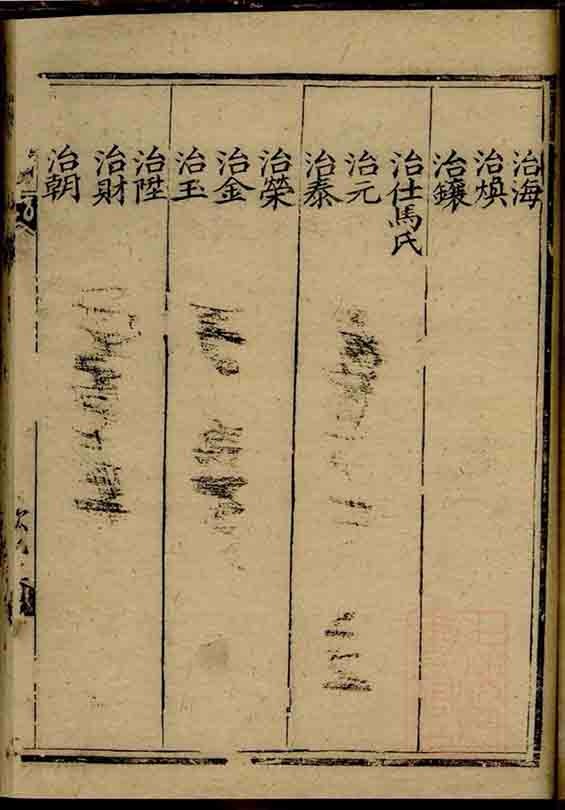 治海
治煥
治鑲
治仕馬氏
治元
治泰
治榮
治金
治玉
治陞
治財
治朝